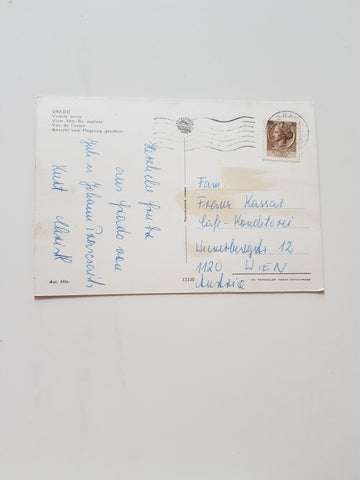 GRADO
Veduta aerea
View from the airplane
Vue de l'avion
Ansicht vom Flugzeug gesehen
Herzliche Grüße
aus Grado von
Johann
Kurt
Aut. Min.
22330
GRADO
Fam.
Franz Kassar
Cafe-Konditorei
Wienerbergstr. 12
1120 WIEN
Austria